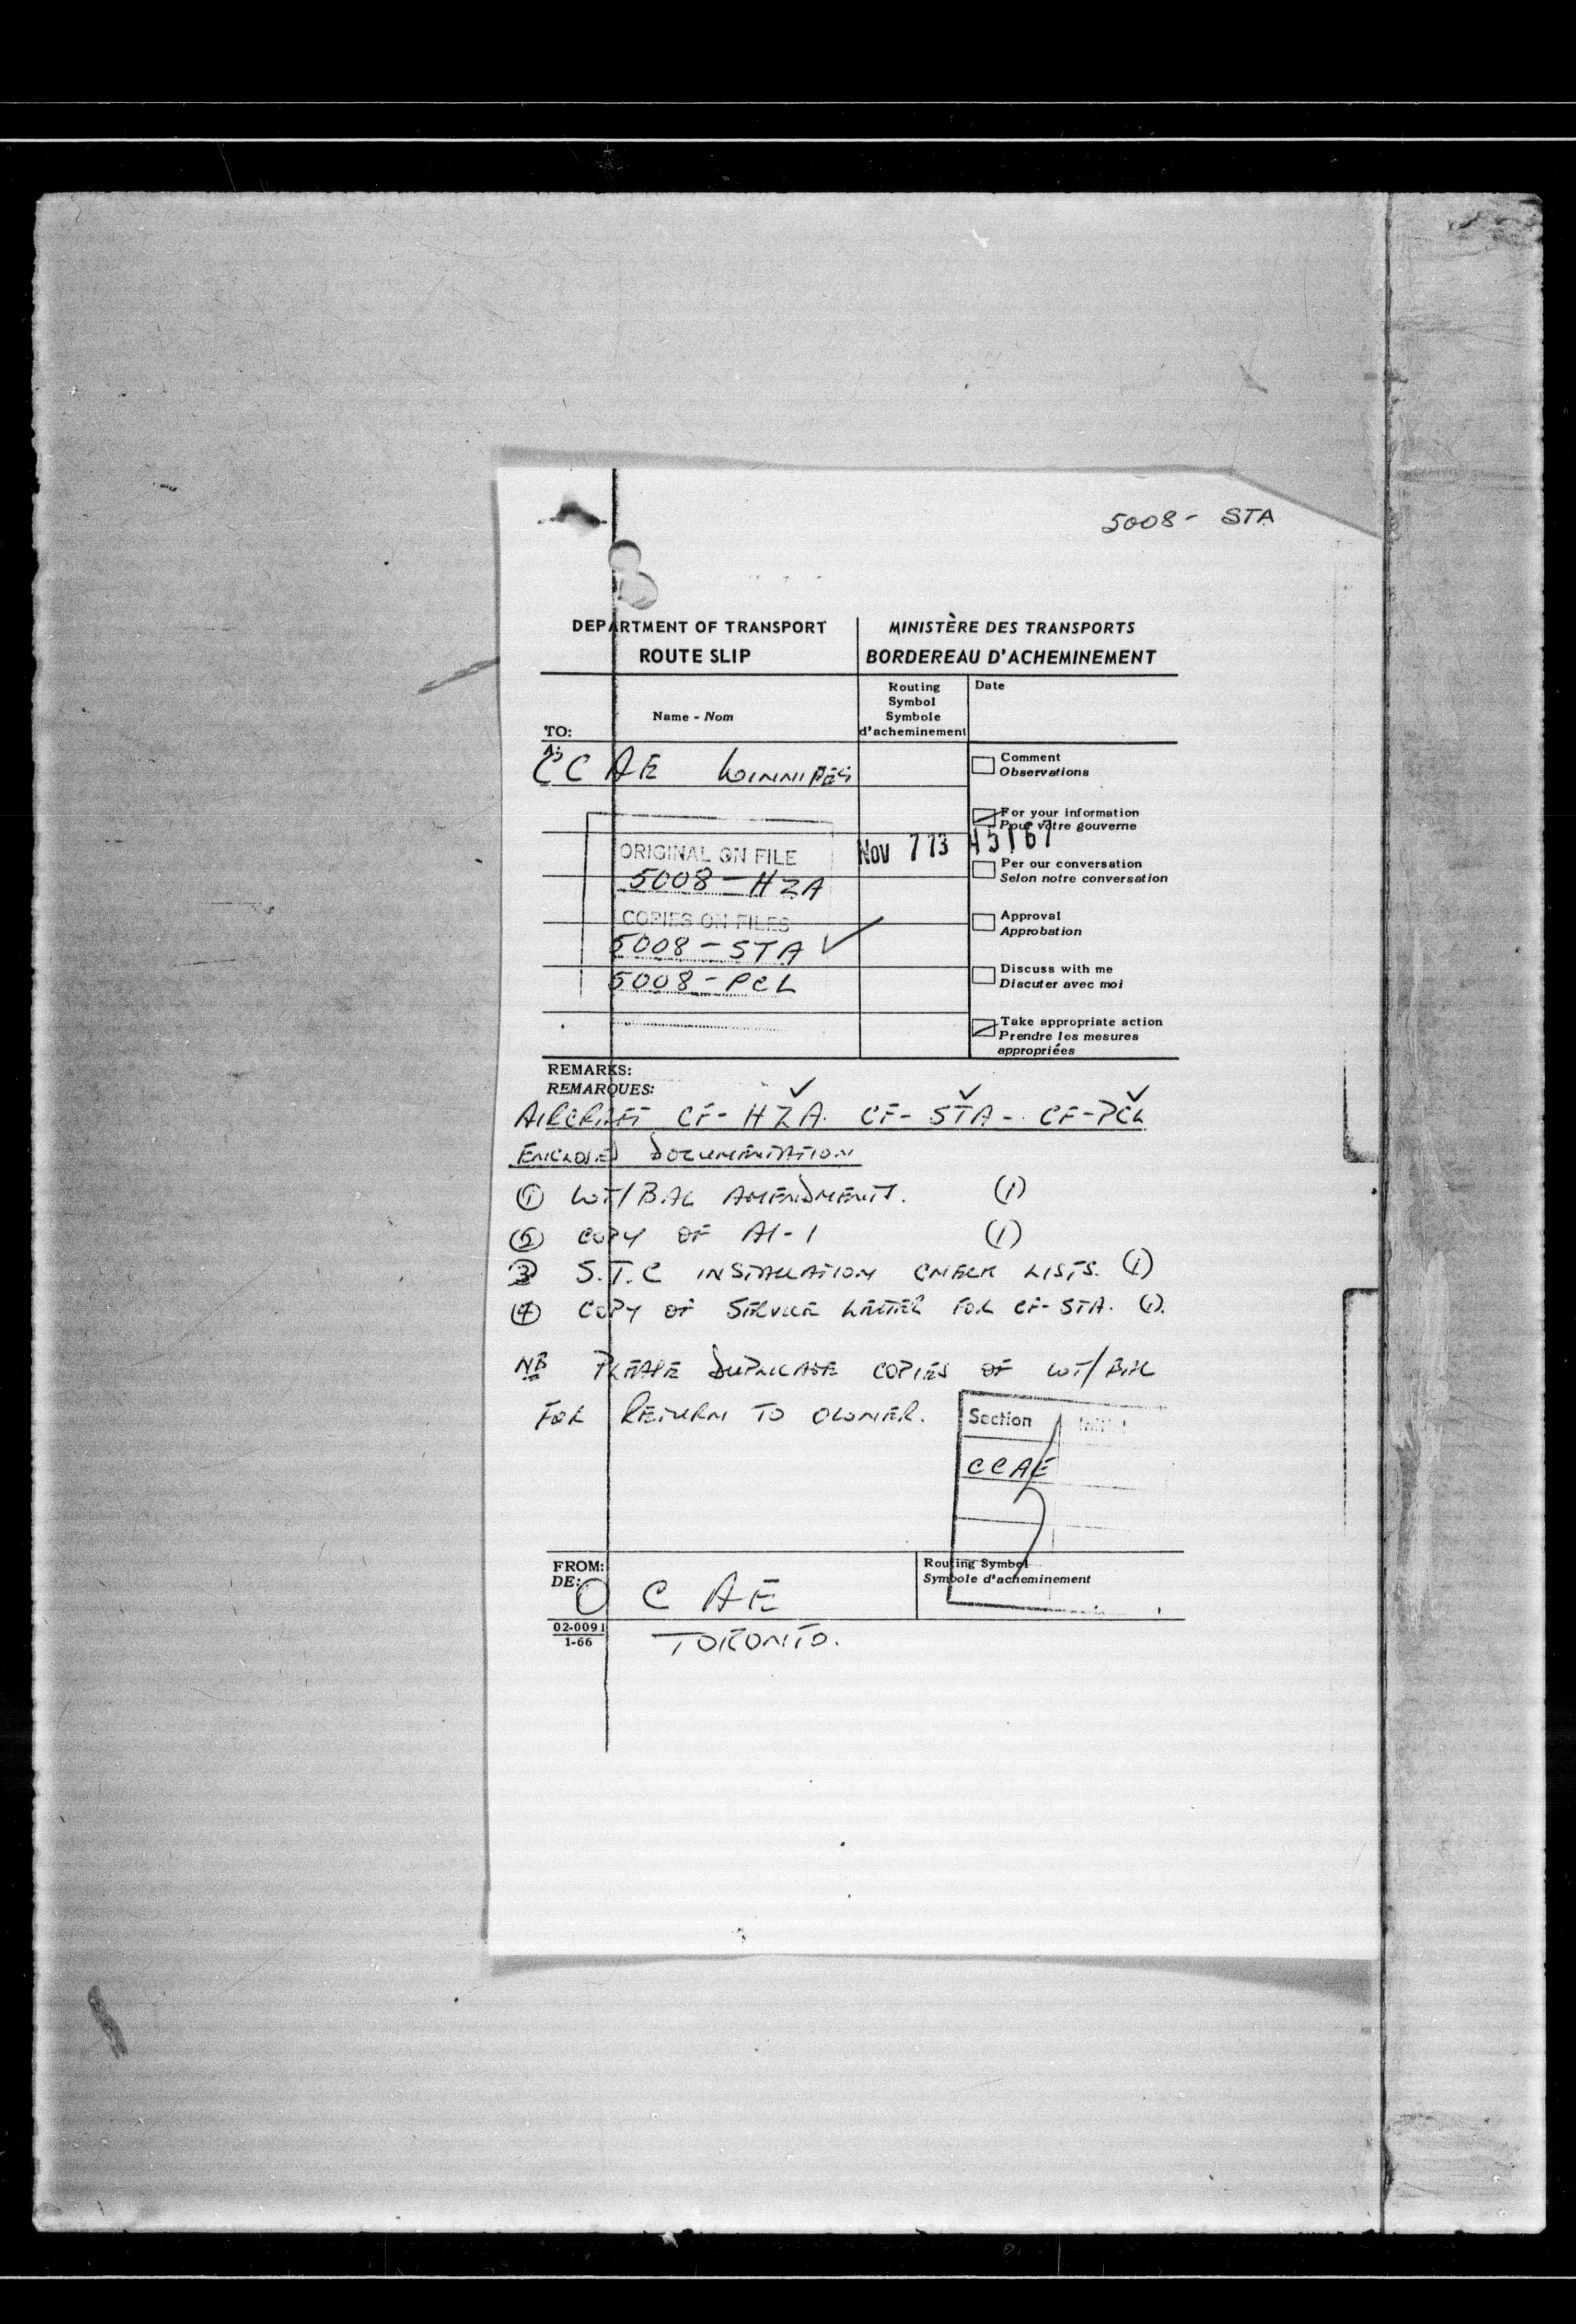 5008- STA
DEPARTMENT OF TRANSPORT
ROUTE SLIP
MINISTÈRE DES TRANSPORTS
BORDEREAU D'ACHEMINEMENT
TO:
A:
Name - Nom
Routing
Symbol
Symbole
d'acheminement
Date
CCAE WINNIPEG
Comment
Observations
For your information
Pour votre gouverne
Nov 7 73 45167
ORIGINAL ON FILE
5008-HZA
Per our conversation
Selon notre conversation
COPIES ON FILES
5008-STA ✓
Approval
Approbation
5008-PCL
Discuss with me
Discuter avec moi
Take appropriate action
Prendre les mesures
appropriées
REMARKS:
REMARQUES:
AIRCRAFT CF-HZA. CF-STA-. CF-PCL
ENCLOSED DOCUMENTATION
① WT/BAL AMENDMENTS. (1)
② COPY OF AI-1 (1)
③ S.T.C INSTALLATION CHECK LISTS. (1)
④ COPY OF SERVICE LETTER FOR CF-STA. (1).
NB PLEASE DUPLICATE COPIES OF WT/BAL
FOR RETURN TO OWNER.
Section Initial
CCAE
FROM:
DE:
O C AE
Routing Symbol
Symbole d'acheminement
02-0091
1-66
TORONTO.